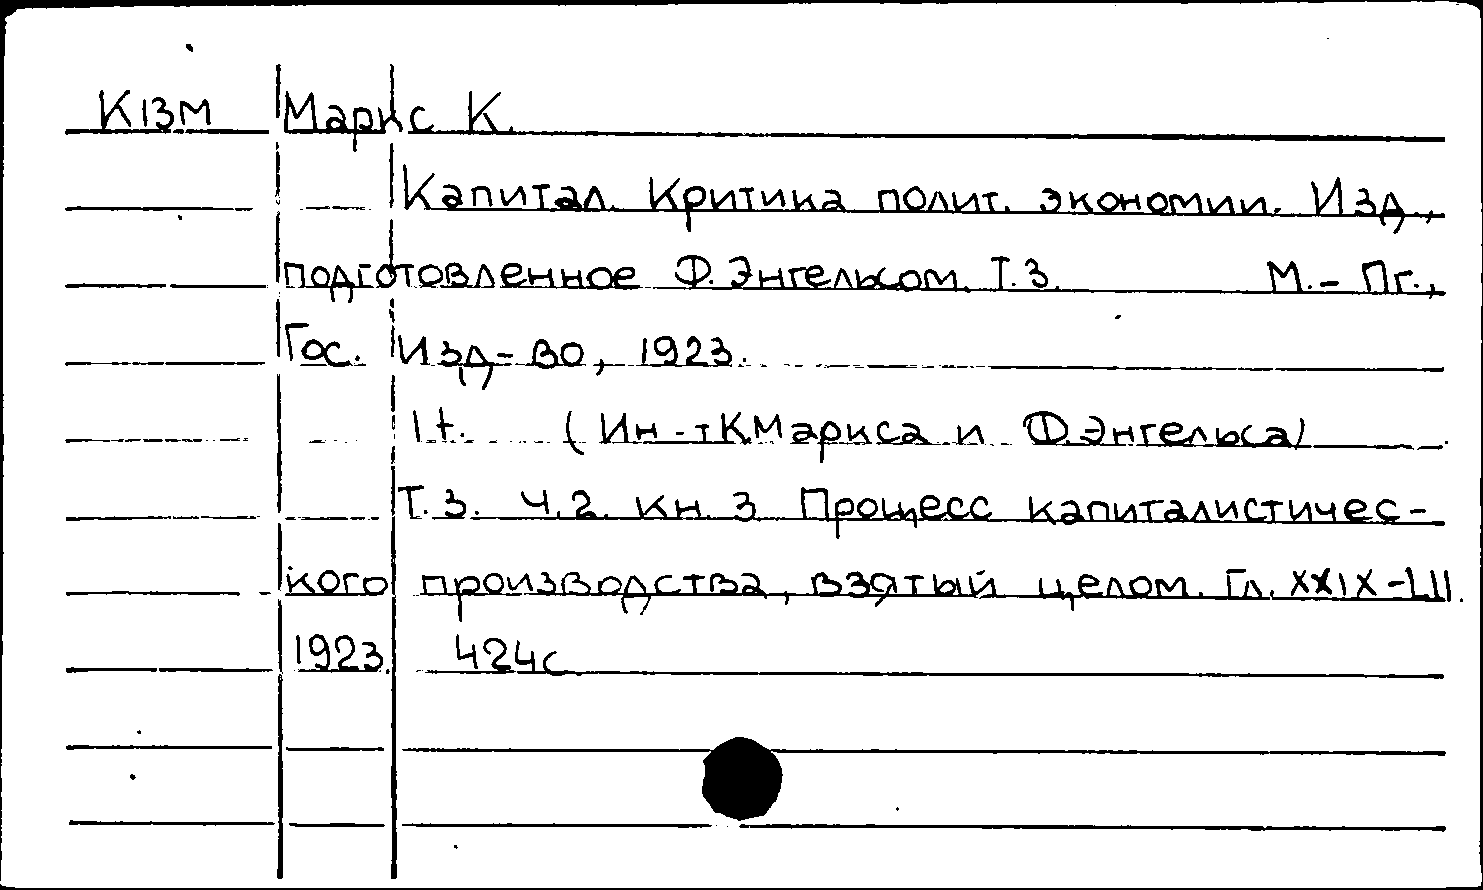 К13М Маркс К.
Капитал. Критика полит. экономии. Изд.,
подготовленное Ф. Энгельсом. Т.3. М.- Пг.,
Гос. Изд-во, 1923.
1 t. (Ин-т К Маркса и Ф. Энгельса)
Т.3. Ч.2. кн. 3 Процесс капиталистичес-
кого производства, взятый целом. Гл. XXIX-LII.
1923. 424с